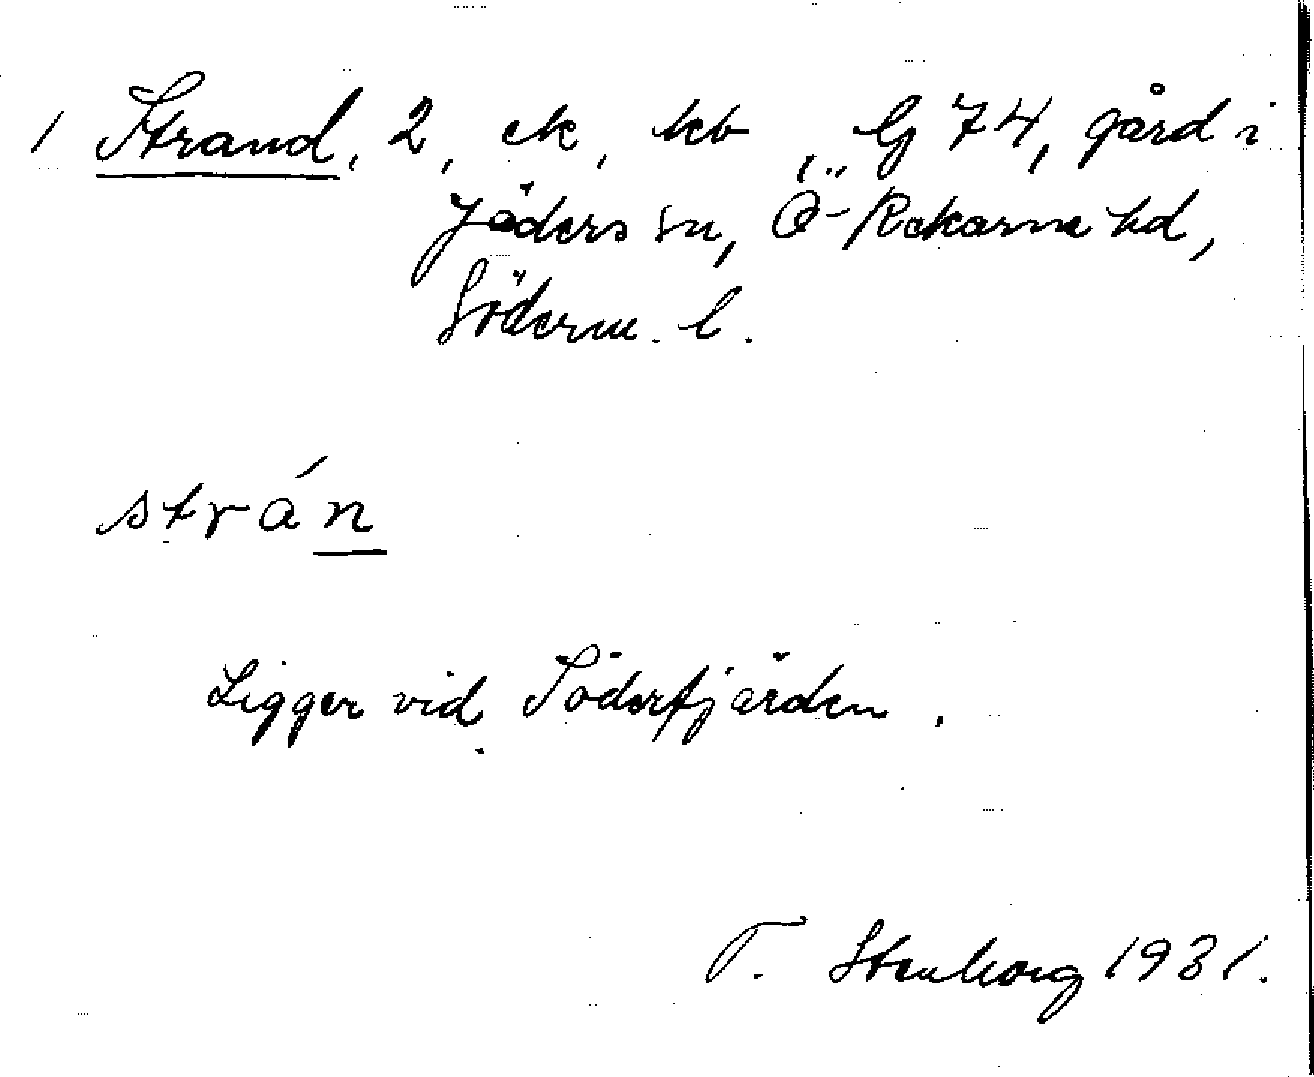 1 Strand, 2, ek, kb, G 74, gård i
Jäders sn, Ö-Rekarne hd,
Söderm. l.
strán
Ligger vid Söderfjärden.
T. Stenborg 1931.